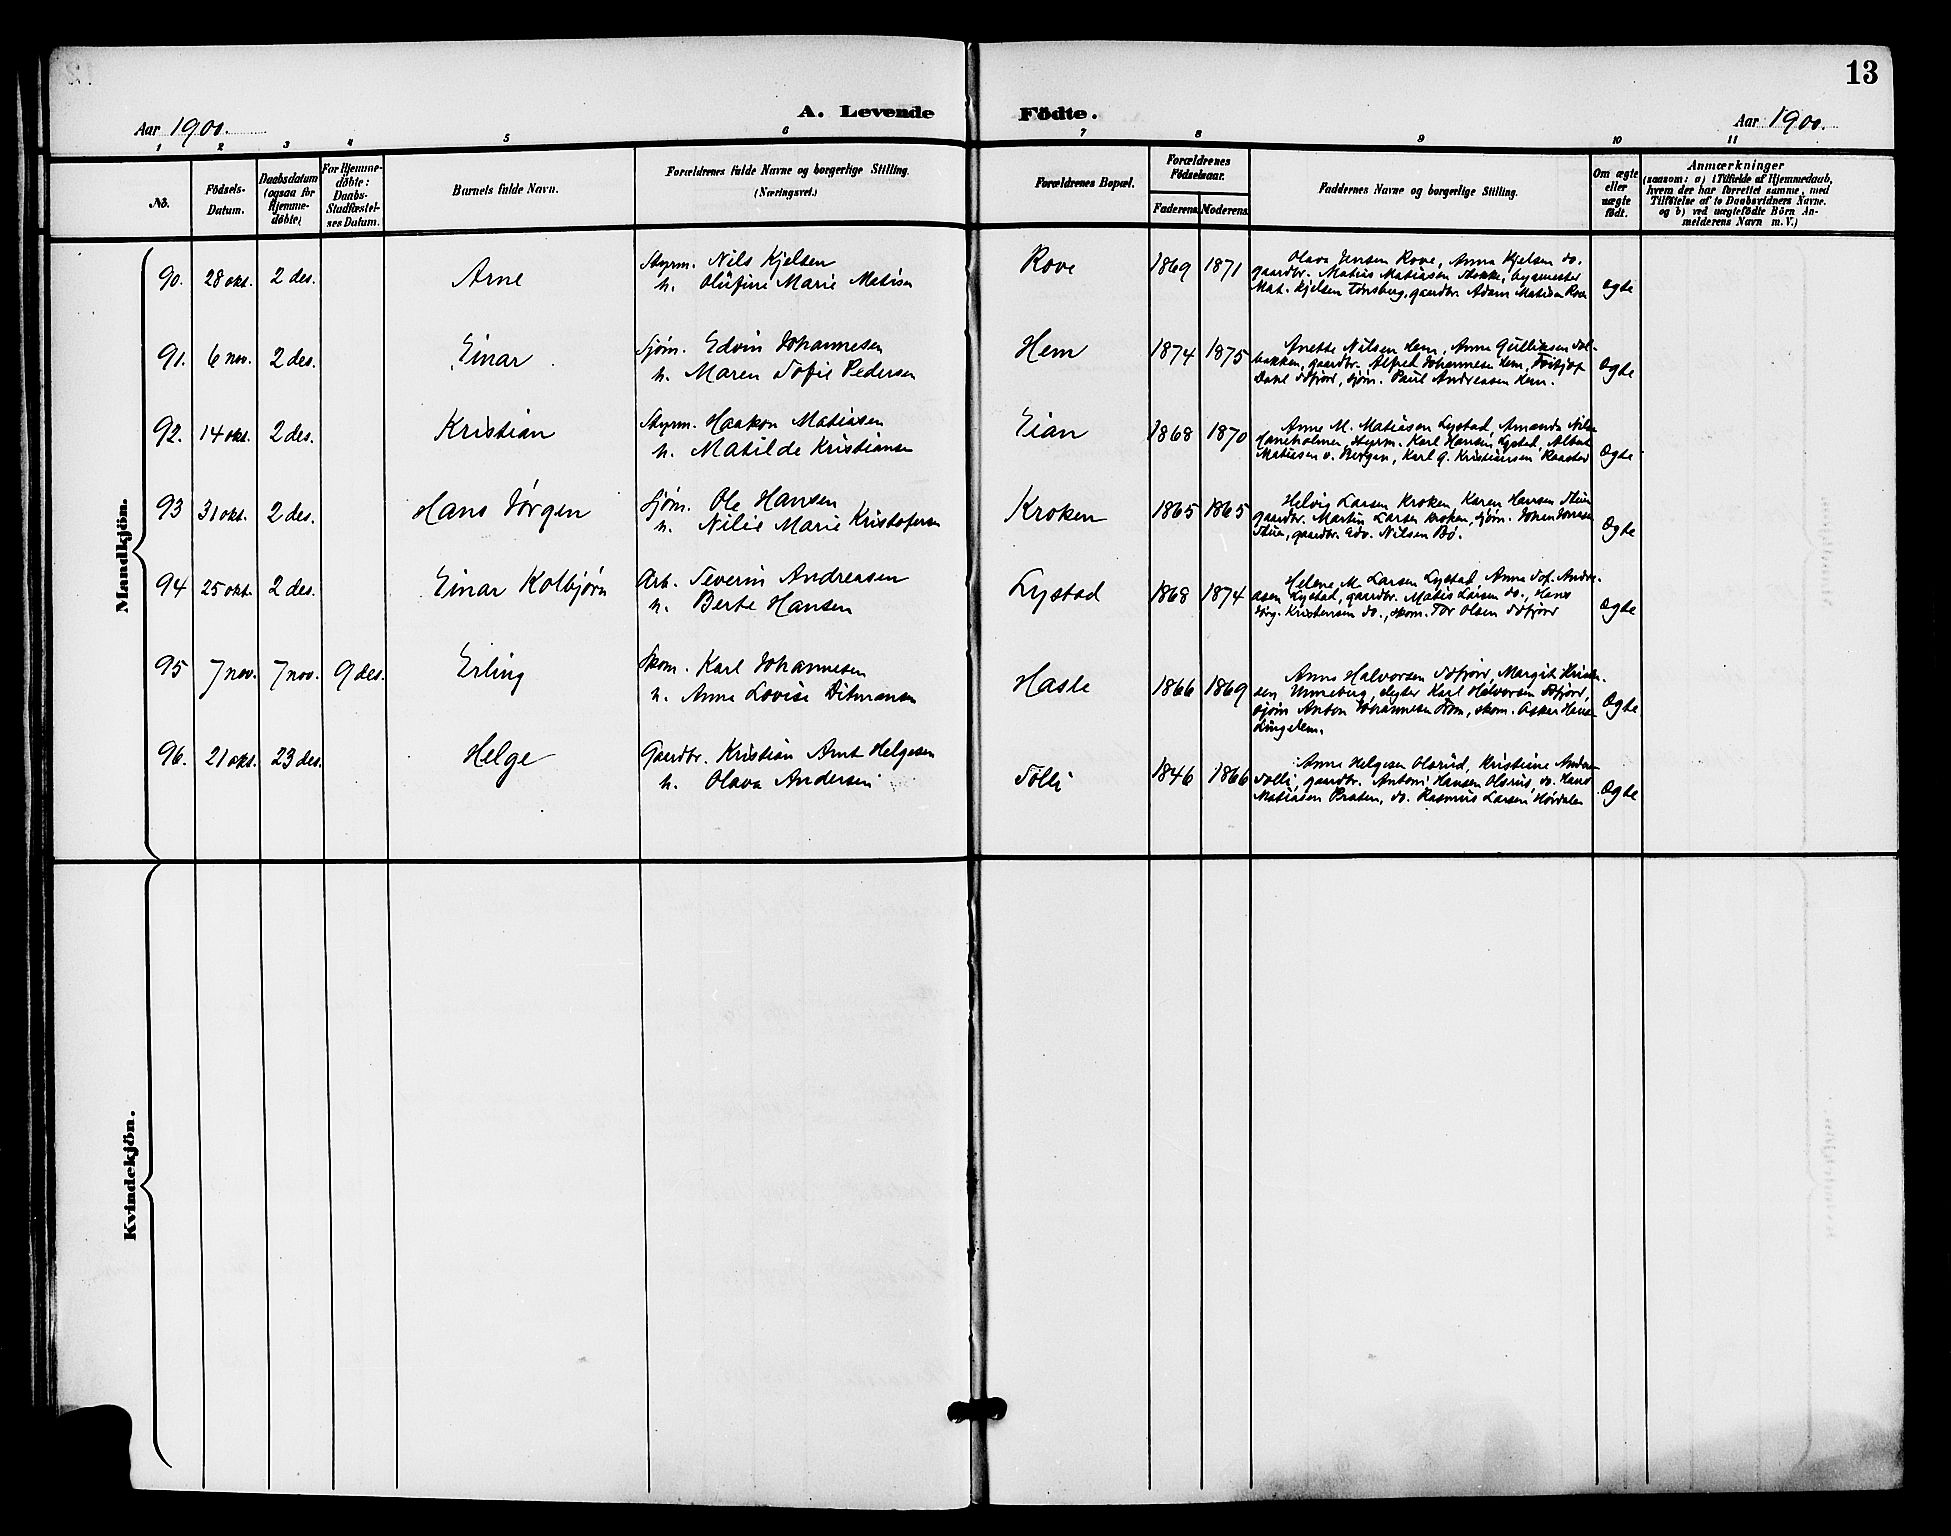 13
A. Levende Födte.
Aar 1900.
Aar 1900.
1 2 3 4 5 6 7 8 9 10 11
No.
Födsels-Datum.
Daabsdatum (ogsaa for Hjemme-döbte)
For Hjemme-döbte: Daabs-Stadfæstel-ses Datum.
Barnets fulde Navn.
Forældrenes fulde Navne og borgerlige Stilling. (Næringsvei.)
Forældrenes Bopæl.
Forældrenes Födselsaar.
Faderens. Moderens.
Faddernes Navne og borgerlige Stilling.
Om ægte eller uægte födt.
Anmærkninger
(saasom: a) i Tilfælde af Hjemmedaab,
hvem der har forrettet samme, med
Tilföielse af to Daabsvidners Navne.
og b) ved uægtefödte Börn An-
melderens Navn m. V.)
Mandkjön.
90. 28 okt. 2 des. Arne
Styrm. Nils Kjelsen
h. Olufine Marie Matisen
Rove 1869 1871
Olava Jensen Rove, Anna Kjelsen do.
gaardbr. Matius Matiasen Stokke,
Mat. Kjelsen Tønsberg, gaardbr. Adam Matisen Rove
Ægte
91. 6 nov. 2 des. Einar
Sjøm. Edvin Johannesen
h. Maren Sofie Pedersen
Hem 1874 1875
Anette Nilsen Hem, Anna Gulliksen Sol-
bakken, gaardbr. Alfred Johannesen Hem,
sjøm. Paul Andreasen Hem.
Ægte
92. 14 okt. 2 des. Kristian
Styrm. Haakon Matiasen
h. Matilde Kristiansen
Eian 1868 1870
Anne M. Matiasen Lystad, Amanda
styrm. Karl Hansen Lystad, Albert
Matiasen v. Bergan, Karl G. Kristiansen Raastad
Ægte
93 31 okt. 2 des. Hans Jørgen
Sjøm. Ole Hansen
h. Nilie Marie Kristofersen
Kroken 1865 1865
Helvig Larsen Kroken, Karen Hansen
gaardbr. Martin Larsen Kroken, sjøm. Johan
gaardbr. Edv. Nilsen Bø.
Ægte
94 25 okt. 2 des. Einar Kolbjørn
Arb. Severin Andreasen
h. Berte Hansen
Lystad 1868 1874
Helene M. Larsen Lystad, Anna Sof. Andre-
asen Lystad, gaardbr. Matis Larsen do., Hans
Jørg. Kristensen do., skom. Tor Olsen
Ægte
95 7 nov. 7 nov. 9 des. Erling
Skom. Karl Johannesen
h. Anna Lovise Ditmansen
Hasle 1866 1869
Anna Halvorsen
Karl Halvorsen
sjøm Anton Johannesen
Ægte
96. 21 okt. 23 des. Helge
Gaardbr. Kristian Arnt Helgesen
h. Olava Andersen
Tolli 1846 1866
Anne Helgesen Olsrud, Kristiane
Tolli, gaardbr. Anton Hansen Olsrud, do. Hans
Matiasen Braten, do. Rasmus Larsen
Ægte
Kvindekjön.